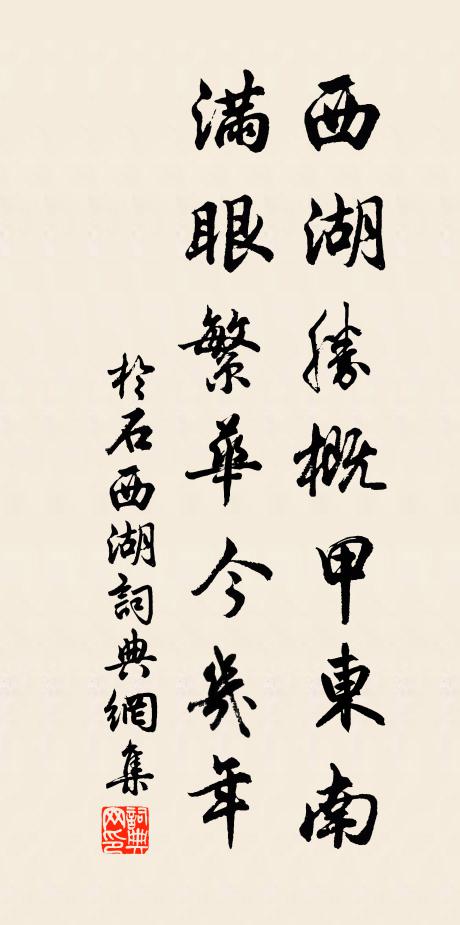 西湖勝概甲東南
滿眼繁華今幾年
於石西湖詞典網集
詞典網印